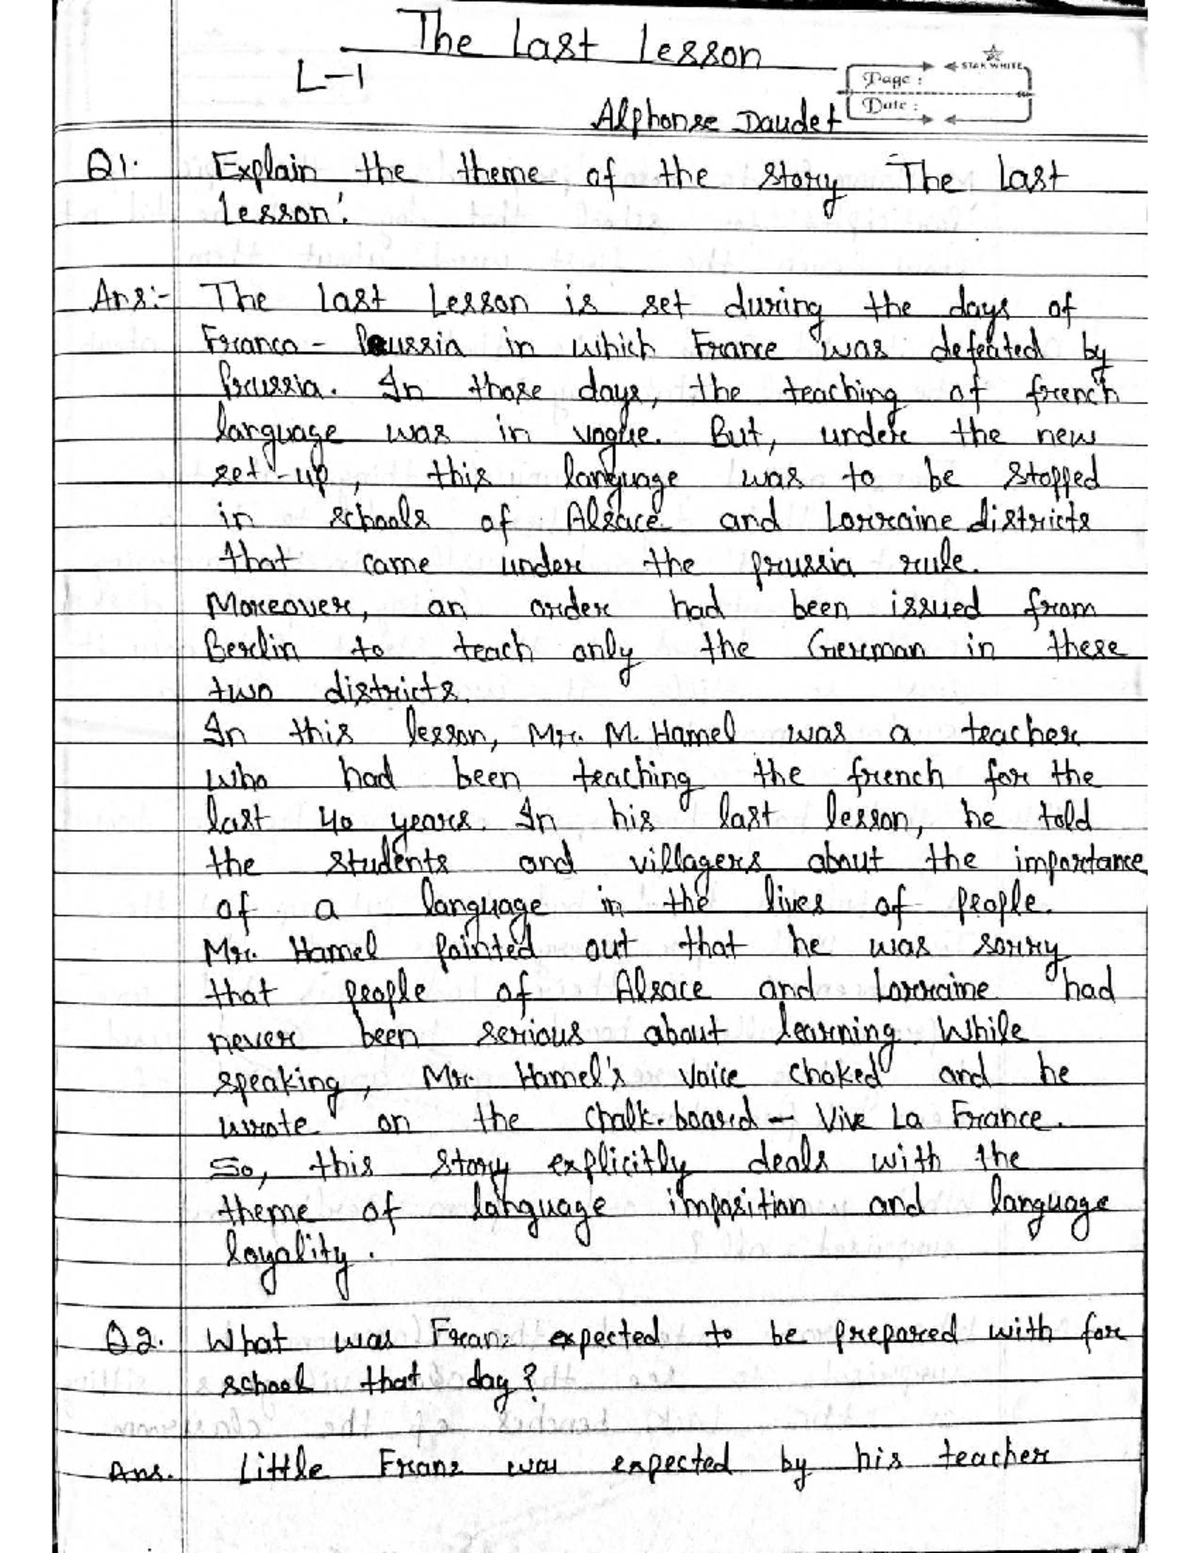 The Last Lesson
L-1
STAR WHITE
Page :
Date :
Alphonse Daudet
Q1. Explain the theme of the story 'The Last
Lesson'.
Ans:- The Last Lesson is set during the days of
Franco - Prussia in which France was defeated by
Prussia. In those days, the teaching of french
language was in vogue. But, under the new
set-up, this language was to be stopped
in schools of Alsace and Lorraine districts
that came under the prussia rule.
Moreover, an order had been issued from
Berlin to teach only the German in these
two districts.
In this lesson, Mr. M. Hamel was a teacher
who had been teaching the french for the
last 40 years. In his last lesson, he told
the students and villagers about the importance
of a language in the lives of people.
Mr. Hamel pointed out that he was sorry
that people of Alsace and Lorraine had
never been serious about learning while
speaking, Mr. Hamel's voice choked and he
wrote on the chalk-board - Vive La France.
So, this story explicitly deals with the
theme of language imposition and language
loyality.
Q2. What was Franz expected to be prepared with for
school that day?
Ans. Little Franz was expected by his teacher